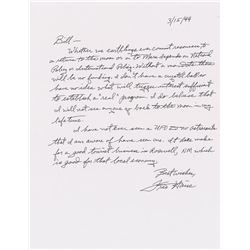 3/15/99
Bill—
Whether we earthlings can commit resources to
a return to the moon or on to Mars depends on National
Policy or International Policy. Without a mandate there
will be no funding. I don't have a crystal ball or
have an idea what will trigger interest sufficient
to establish a "real" program. I do believe that
I will not see anyone go back to the moon in my
lifetime.
I have not ever seen a UFO and no astronauts
that I am aware of have seen one. It does make
for a good tourist business in Roswell, NM which
is good for that local economy.
Best wishes,
Fred Haise